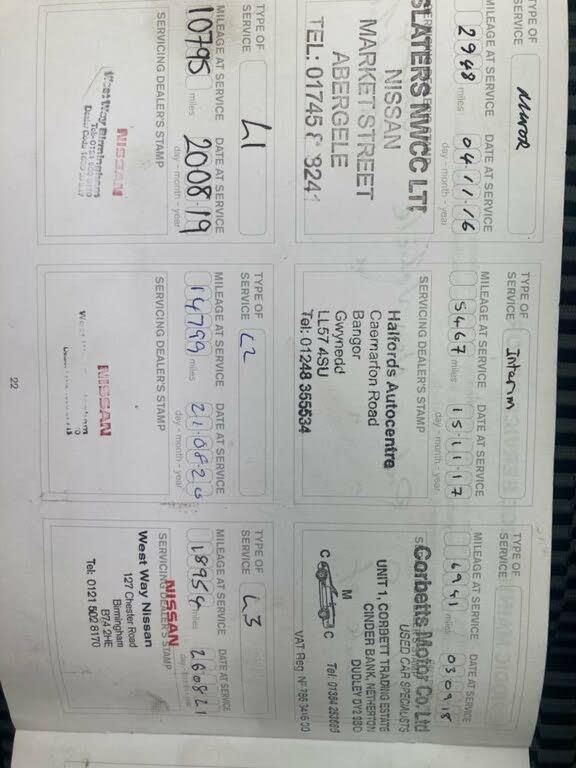 TYPE OF
SERVICE
MILEAGE AT SERVICE DATE AT SERVICE
2948 miles 04·11·16
day - month - year
SLATERS NWCC LT
NISSAN
MARKET STREET
ABERGELE
TEL: 01745 8 324
TYPE OF
SERVICE Interim
MILEAGE AT SERVICE DATE AT SERVICE
5467 miles 15·11·17
day - month - year
SERVICING DEALER'S STAMP
Halfords Autocentre
Caernarfon Road
Bangor
Gwynedd
LL57 4SU
Tel: 01248 355534
TYPE OF
SERVICE
MILEAGE AT SERVICE DATE AT SERVICE
6941 miles 030918
Corbetts Motor Co. Ltd
USED CAR SPECIALISTS
UNIT 1, CORBETT TRADING ESTATE
CINDER BANK, NETHERTON
DUDLEY DY2 9BO
C M C
VAT Reg.
TYPE OF
SERVICE L1
MILEAGE AT SERVICE DATE AT SERVICE
10795 miles 2008·19
day - month - year
SERVICING DEALER'S STAMP
NISSAN
West Way Birmingham
TYPE OF
SERVICE L2
MILEAGE AT SERVICE DATE AT SERVICE
14799 miles 21·08·20
day - month - year
SERVICING DEALER'S STAMP
NISSAN
TYPE OF
SERVICE L3
MILEAGE AT SERVICE DATE AT SERVICE
18954 miles 260821
SERVICING DEALER'S STAMP
NISSAN
West Way Nissan
127 Chester Road
Birmingham
B74 2HE
Tel: 0121 502 8170
22